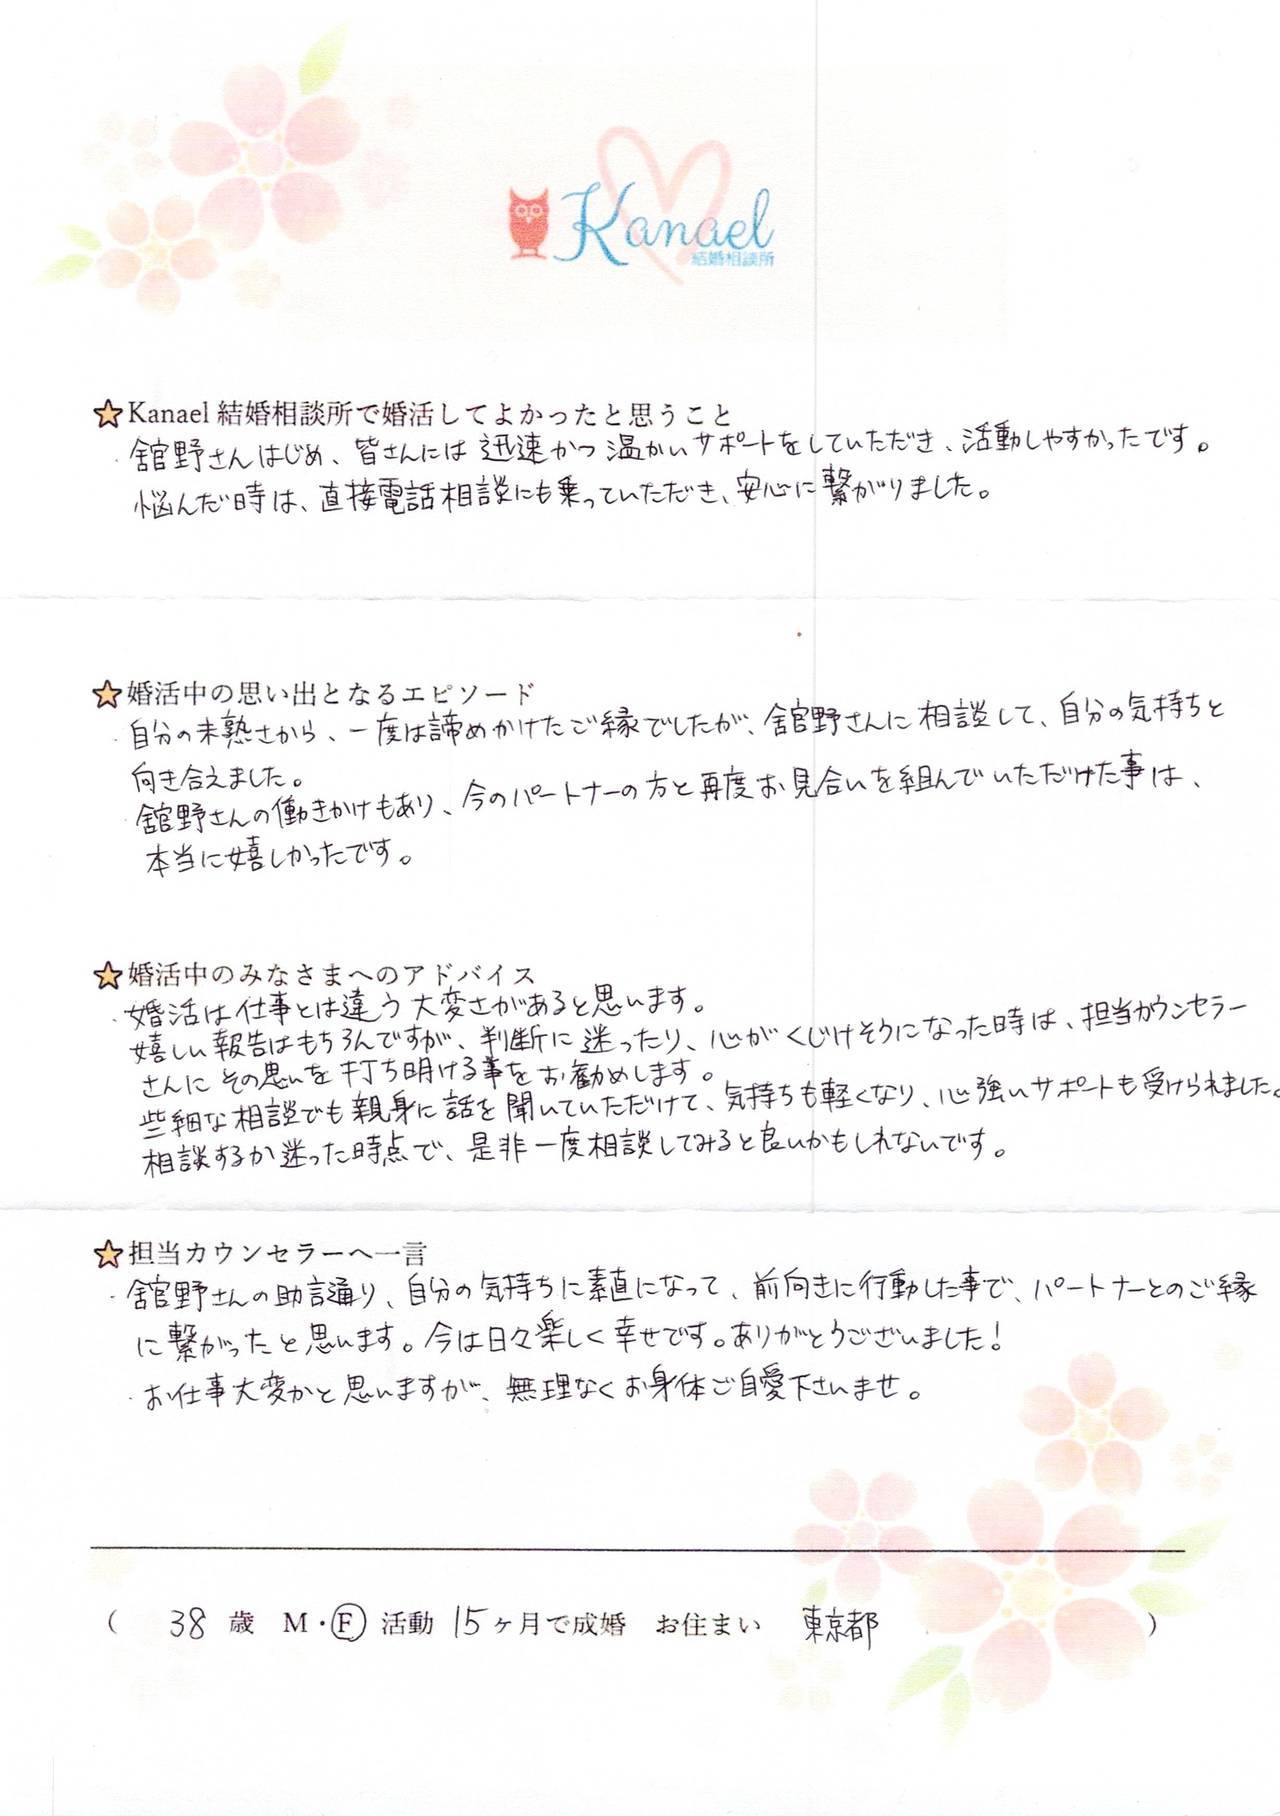 Kanael
結婚相談所
Kanael 結婚相談所で婚活してよかったと思うこと
・舘野さんはじめ、皆さんには迅速かつ温かいサポートをしていただき、活動しやすかったです。
悩んだ時は、直接電話相談にも乗っていただき、安心に繋がりました。
婚活中の思い出となるエピソード
・自分の未熟さから、一度は諦めかけたご縁でしたが、舘野さんに相談して、自分の気持ちと
向き合えました。
舘野さんの働きかけもあり、今のパートナーの方と再度お見合いを組んでいただけた事は、
本当に嬉しかったです。
婚活中のみなさまへのアドバイス
・婚活は仕事とは違う大変さがあると思います。
嬉しい報告はもちろんですが、判断に迷ったり、心がくじけそうになった時は、担当カウンセラー
さんにその思いを打ち明ける事をお勧めします。
些細な相談でも親身に話を聞いていただけて、気持ちも軽くなり、心強いサポートも受けられました。
相談するか迷った時点で、是非一度相談してみると良いかもしれないです。
担当カウンセラーへ一言
・舘野さんの助言通り、自分の気持ちに素直になって、前向きに行動した事で、パートナーとのご縁
に繋がったと思います。今は日々楽しく幸せです。ありがとうございました!
・お仕事大変かと思いますが、無理なくお身体ご自愛下さいませ。
( 38 歳 M・F 活動 15ヶ月で成婚 お住まい 東京都 )